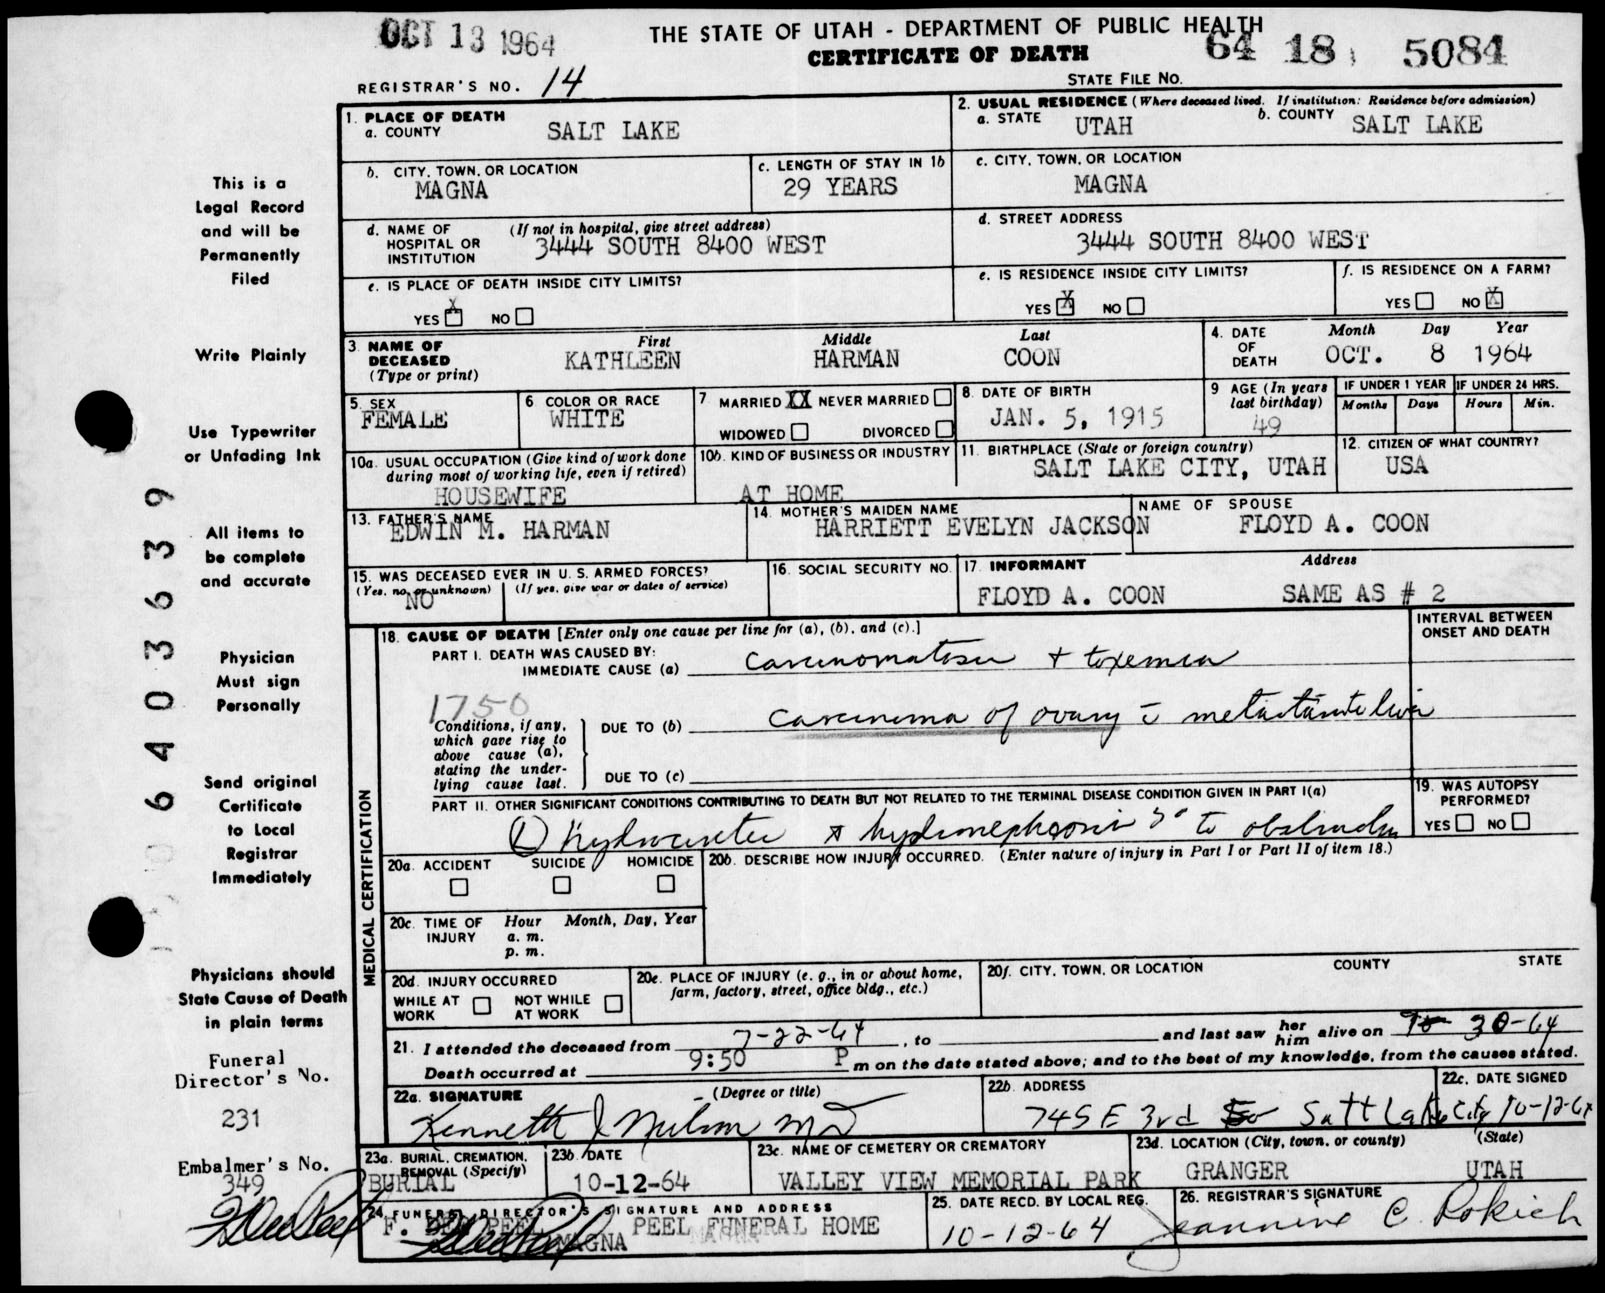 OCT 13 1964
THE STATE OF UTAH - DEPARTMENT OF PUBLIC HEALTH
CERTIFICATE OF DEATH
64 18 5084
REGISTRAR'S NO. 14
STATE FILE NO.
1. PLACE OF DEATH
a. COUNTY SALT LAKE
2. USUAL RESIDENCE (Where deceased lived. If institution: Residence before admission)
a. STATE UTAH b. COUNTY SALT LAKE
b. CITY, TOWN, OR LOCATION MAGNA
c. LENGTH OF STAY IN 1b 29 YEARS
c. CITY, TOWN, OR LOCATION MAGNA
d. NAME OF HOSPITAL OR INSTITUTION (If not in hospital, give street address)
3444 SOUTH 8400 WEST
d. STREET ADDRESS
3444 SOUTH 8400 WEST
e. IS PLACE OF DEATH INSIDE CITY LIMITS?
YES X NO
e. IS RESIDENCE INSIDE CITY LIMITS?
YES X NO
f. IS RESIDENCE ON A FARM?
YES NO X
3. NAME OF DECEASED (Type or print)
First Middle Last
KATHLEEN HARMAN COON
4. DATE OF DEATH
Month Day Year
OCT. 8 1964
5. SEX FEMALE
6. COLOR OR RACE WHITE
7. MARRIED XX NEVER MARRIED
WIDOWED DIVORCED
8. DATE OF BIRTH
JAN. 5, 1915
9 AGE (In years last birthday) 49
IF UNDER 1 YEAR IF UNDER 24 HRS.
Months Days Hours Min.
10a. USUAL OCCUPATION (Give kind of work done during most of working life, even if retired)
HOUSEWIFE
10b. KIND OF BUSINESS OR INDUSTRY
AT HOME
11. BIRTHPLACE (State or foreign country)
SALT LAKE CITY, UTAH
12. CITIZEN OF WHAT COUNTRY?
USA
13. FATHER'S NAME
EDWIN M. HARMAN
14. MOTHER'S MAIDEN NAME
HARRIETT EVELYN JACKSON
NAME OF SPOUSE
FLOYD A. COON
15. WAS DECEASED EVER IN U. S. ARMED FORCES?
(Yes, no, or unknown) (If yes, give war or dates of service)
NO
16. SOCIAL SECURITY NO.
17. INFORMANT Address
FLOYD A. COON SAME AS # 2
MEDICAL CERTIFICATION
18. CAUSE OF DEATH [Enter only one cause per line for (a), (b), and (c).]
INTERVAL BETWEEN ONSET AND DEATH
PART I. DEATH WAS CAUSED BY:
IMMEDIATE CAUSE (a) carcinomatosis + toxemia
1750
Conditions, if any, which gave rise to above cause (a), stating the underlying cause last.
DUE TO (b) carcinoma of ovary c metastasis to liver
DUE TO (c)
PART II. OTHER SIGNIFICANT CONDITIONS CONTRIBUTING TO DEATH BUT NOT RELATED TO THE TERMINAL DISEASE CONDITION GIVEN IN PART I(a)
(1) hydroureter & hydronephrosis 2° to obstruction
19. WAS AUTOPSY PERFORMED?
YES NO
20a. ACCIDENT SUICIDE HOMICIDE
20b. DESCRIBE HOW INJURY OCCURRED. (Enter nature of injury in Part I or Part II of item 18.)
20c. TIME OF INJURY Hour Month, Day, Year
a. m.
p. m.
20d. INJURY OCCURRED
WHILE AT WORK NOT WHILE AT WORK
20e. PLACE OF INJURY (e. g., in or about home, farm, factory, street, office bldg., etc.)
20f. CITY, TOWN, OR LOCATION COUNTY STATE
21. I attended the deceased from 7-22-64, to and last saw her him alive on 30-64
Death occurred at 9:50 P m on the date stated above; and to the best of my knowledge, from the causes stated.
22a. SIGNATURE (Degree or title)
Kenneth J Nielson MD
22b. ADDRESS
745 E 3rd So Salt Lake City
22c. DATE SIGNED
10-12-64
23a. BURIAL, CREMATION, REMOVAL (Specify)
BURIAL
23b. DATE
10-12-64
23c. NAME OF CEMETERY OR CREMATORY
VALLEY VIEW MEMORIAL PARK
23d. LOCATION (City, town, or county) (State)
GRANGER UTAH
24. FUNERAL DIRECTOR'S SIGNATURE AND ADDRESS
F. DEE PEEL PEEL FUNERAL HOME
MAGNA
25. DATE RECD. BY LOCAL REG.
10-12-64
26. REGISTRAR'S SIGNATURE
Jeannine C. Rokich
This is a
Legal Record
and will be
Permanently
Filed
Write Plainly
Use Typewriter
or Unfading Ink
All items to
be complete
and accurate
Physician
Must sign
Personally
Send original
Certificate
to Local
Registrar
Immediately
Physicians should
State Cause of Death
in plain terms
Funeral
Director's No.
231
Embalmer's No.
349
F Dee Peel
6403639